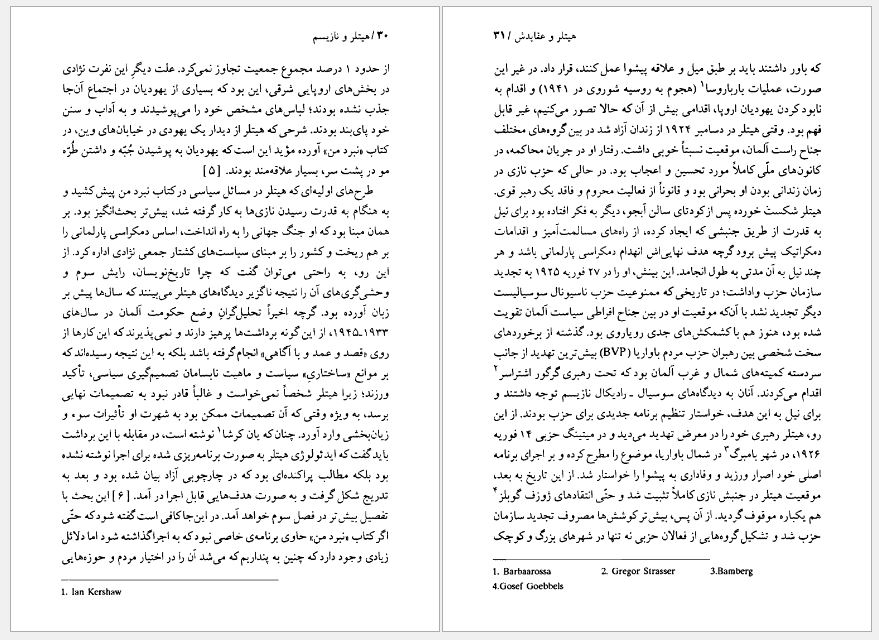 ۳۰ / هیتلر و نازیسم
از حدود ۱ درصد مجموع جمعیت تجاوز نمی‌کرد. علت دیگرِ این نفرت نژادی
در بخش‌های اروپایی شرقی، این بود که بسیاری از یهودیان در اجتماع آن‌جا
جذب نشده بودند؛ لباس‌های مشخص خود را می‌پوشیدند و به آداب و سنن
خود پای‌بند بودند. شرحی که هیتلر از دیدار یک یهودی در خیابان‌های وین، در
کتاب «نبرد من» آورده مؤید این است که یهودیان به پوشیدن جُبّه و داشتن طُرّه
مو در پشت سر، بسیار علاقه‌مند بودند. [۵]
طرح‌های اولیه‌ای که هیتلر در مسائل سیاسی در کتاب نبرد من پیش کشید و
به هنگام به قدرت رسیدن نازی‌ها به کار گرفته شد، بیش‌تر بحث‌انگیز بود. بر
همان مبنا بود که او جنگ جهانی را به راه انداخت، اساس دمکراسی پارلمانی را
بر هم ریخت و کشور را بر مبنای سیاست‌های کشتار جمعی نژادی اداره کرد. از
این رو، به راحتی می‌توان گفت که چرا تاریخ‌نویسان، رایش سوم و
وحشی‌گری‌های آن را نتیجه ناگزیر دیدگاه‌های هیتلر می‌بینند که سال‌ها پیش بر
زبان آورده بود. گرچه اخیراً تحلیل‌گرانِ وضع حکومت آلمان در سال‌های
۱۹۳۳ـ۱۹۴۵، از این گونه برداشت‌ها پرهیز دارند و نمی‌پذیرند که این کارها از
روی «قصد و عمد و با آگاهی» انجام گرفته باشد بلکه به این نتیجه رسیده‌اند که
بر موانع «ساختاریِ» سیاست و ماهیت نابسامان تصمیم‌گیری سیاسی، تأکید
ورزند؛ زیرا هیتلر شخصاً نمی‌خواست و غالباً قادر نبود به تصمیمات نهایی
برسد، به ویژه وقتی که آن تصمیمات ممکن بود به شهرت او تأثیرات سوء و
زیان‌بخشی وارد آورد. چنان‌که یان کرشا۱ نوشته است، در مقابله با این برداشت
باید گفت که ایدئولوژی هیتلر به صورت برنامه‌ریزی شده برای اجرا نوشته نشده
بود بلکه مطالب پراکنده‌ای بود که در چارچوبی آزاد بیان شده بود و بعد به
تدریج شکل گرفت و به صورت هدف‌هایی قابل اجرا در آمد. [۶] این بحث با
تفصیل بیش‌تر در فصل سوم خواهد آمد. در این‌جا کافی است گفته شود که حتّی
اگر کتاب «نبرد من» حاوی برنامه‌ی خاصی نبود که به اجرا گذاشته شود اما دلائل
زیادی وجود دارد که چنین به پنداریم که می‌شد آن را در اختیار مردم و حوزه‌هایی
1. Ian Kershaw
هیتلر و عقایدش / ۳۱
که باور داشتند باید بر طبق میل و علاقه پیشوا عمل کنند، قرار داد. در غیر این
صورت، عملیات بارباروسا۱ (هجوم به روسیه شوروی در ۱۹۴۱) و اقدام به
نابود کردن یهودیان اروپا، اقدامی بیش از آن که حالا تصور می‌کنیم، غیر قابل
فهم بود. وقتی هیتلر در دسامبر ۱۹۲۴ از زندان آزاد شد در بین گروه‌های مختلف
جناح راست آلمان، موقعیت نسبتاً خوبی داشت. رفتار او در جریان محاکمه، در
کانون‌های ملّی کاملاً مورد تحسین و اعجاب بود. در حالی که حزب نازی در
زمان زندانی بودن او بحرانی بود و قانوناً از فعالیت محروم و فاقد یک رهبر قوی.
هیتلر شکست خورده پس از کودتای سالن آبجو، دیگر به فکر افتاده بود برای نیل
به قدرت از طریق جنبشی که ایجاد کرده، از راه‌های مسالمت‌آمیز و اقدامات
دمکراتیک پیش برود گرچه هدف نهایی‌اش انهدام دمکراسی پارلمانی باشد و هر
چند نیل به آن مدتی به طول انجامد. این بینش، او را در ۲۷ فوریه ۱۹۲۵ به تجدید
سازمان حزب واداشت؛ در تاریخی که ممنوعیت حزب ناسیونال سوسیالیست
دیگر تجدید نشد با آن‌که موقعیت او در بین جناح افراطی سیاست آلمان تقویت
شده بود، هنوز هم با کشمکش‌های جدی رویاروی بود. گذشته از برخوردهای
سخت شخصی بین رهبران حزب مردم باواریا (BVP) بیش‌ترین تهدید از جانب
سردسته کمیته‌های شمال و غرب آلمان بود که تحت رهبری گرگور اشتراسر۲
اقدام می‌کردند. آنان به دیدگاه‌های سوسیال ـ رادیکال نازیسم توجه داشتند و
برای نیل به این هدف، خواستار تنظیم برنامه جدیدی برای حزب بودند. از این
رو، هیتلر رهبری خود را در معرض تهدید می‌دید و در میتینگ حزبی ۱۴ فوریه
۱۹۲۶، در شهر بامبرگ۳ در شمال باواریا، موضوع را مطرح کرده و بر اجرای برنامه
اصلی خود اصرار ورزید و وفاداری به پیشوا را خواستار شد. از این تاریخ به بعد،
موقعیت هیتلر در جنبش نازی کاملاً تثبیت شد و حتّی انتقادهای ژوزف گوبلز۴
هم یکباره موقوف گردید. از آن پس، بیش‌تر کوشش‌ها مصروف تجدید سازمان
حزب شد و تشکیل گروه‌هایی از فعالان حزبی نه تنها در شهرهای بزرگ و کوچک
1. Barbaarossa 2. Gregor Strasser 3.Bamberg
4.Gosef Goebbels